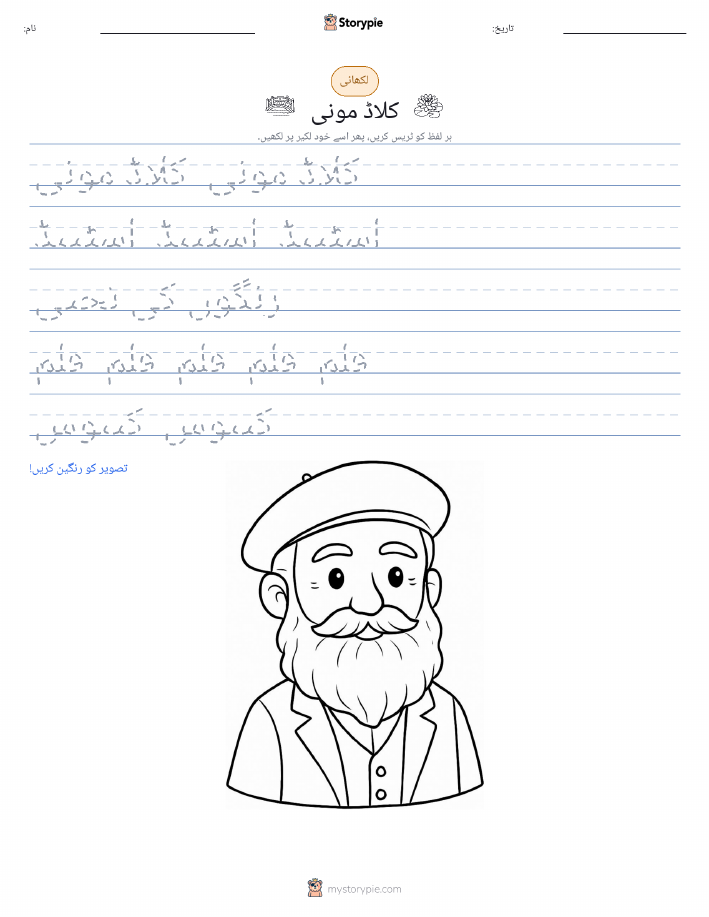 Storypie
نام:
تاریخ:
لکھائی
کلاڈ مونی
ہر لفظ کو ٹریس کریں، پھر اسے خود لکیر پر لکھیں۔
کلاڈ مونی کلاڈ مونی
اسٹینڈ اسٹینڈ اسٹینڈ
رنگوں کی تختی
قلم قلم قلم قلم قلم
کینوس کینوس
تصویر کو رنگین کریں!
mystorypie.com